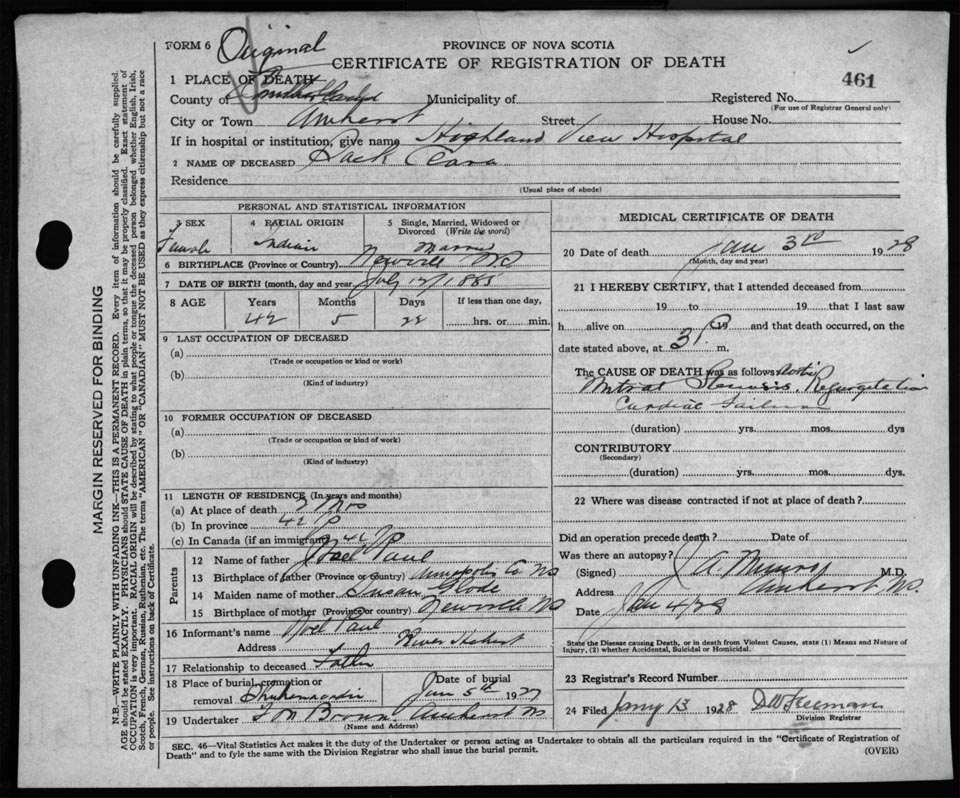 FORM 6 Original
PROVINCE OF NOVA SCOTIA
CERTIFICATE OF REGISTRATION OF DEATH
461
1 PLACE OF DEATH
County of Cumberland Municipality of Registered No.
(For use of Registrar General only)
City or Town Amherst Street House No.
If in hospital or institution, give name Highland View Hospital
2 NAME OF DECEASED Sack Clara
Residence
(Usual place of abode)
PERSONAL AND STATISTICAL INFORMATION
3 SEX Female
4 RACIAL ORIGIN Indian
5 Single, Married, Widowed or Divorced (Write the word) Married
6 BIRTHPLACE (Province or Country) NS
7 DATE OF BIRTH (month, day and year) July 12/1885
8 AGE Years Months Days If less than one day,
42 5 22 hrs. or min.
9 LAST OCCUPATION OF DECEASED
(a)
(Trade or occupation or kind or work)
(b)
(Kind of industry)
10 FORMER OCCUPATION OF DECEASED
(a)
(Trade or occupation or kind of work)
(b)
(Kind of industry)
11 LENGTH OF RESIDENCE (In years and months)
(a) At place of death mos
(b) In province 42
(c) In Canada (if an immigrant) 42
Parents
12 Name of father Noel Paul
13 Birthplace of father (Province or country) Annapolis Co NS
14 Maiden name of mother Susan Glode
15 Birthplace of mother (Province or country) NS
16 Informant's name Noel Paul
Address River Hebert
17 Relationship to deceased Father
18 Place of burial, cremation or removal Date of burial
Jan 5th 1927
19 Undertaker Brown Amherst NS
(Name and Address)
MEDICAL CERTIFICATE OF DEATH
20 Date of death Jan 3rd 1928
(Month, day and year)
21 I HEREBY CERTIFY, that I attended deceased from
19 to 19 that I last saw
h alive on 19 and that death occurred, on the
date stated above, at 3 P. m.
The CAUSE OF DEATH was as follows Aortic
Mitral Stenosis Regurgitation
Cardiac Failure
(duration) yrs. mos. dys
CONTRIBUTORY
(Secondary)
(duration) yrs. mos. dys.
22 Where was disease contracted if not at place of death?
Did an operation precede death? Date of
Was there an autopsy?
(Signed) J A Munro M.D.
Address Amherst NS.
Date Jan 4/28
State the Disease causing Death, or in death from Violent Causes, state (1) Means and Nature of
Injury, (2) whether Accidental, Suicidal or Homicidal.
23 Registrar's Record Number
24 Filed Janry 13 1928 DW Freeman
Division Registrar
SEC. 46—Vital Statistics Act makes it the duty of the Undertaker or person acting as Undertaker to obtain all the particulars required in the "Certificate of Registration of
Death" and to fyle the same with the Division Registrar who shall issue the burial permit.
(OVER)
MARGIN RESERVED FOR BINDING
N.B.—WRITE PLAINLY WITH UNFADING INK—THIS IS A PERMANENT RECORD. Every item of information should be carefully supplied.
AGE should be stated EXACTLY. PHYSICIANS should STATE CAUSE OF DEATH in plain terms, so that it may be properly classified. Exact statement of
OCCUPATION is very important. RACIAL ORIGIN will be described by stating to what people or tongue the deceased person belonged whether English, Irish,
Scotch, French, German, Russian, Ruthenian, etc. The terms "AMERICAN" or "CANADIAN" MUST NOT BE USED as they express citizenship but not a race
or people. See instructions on back of Certificate.